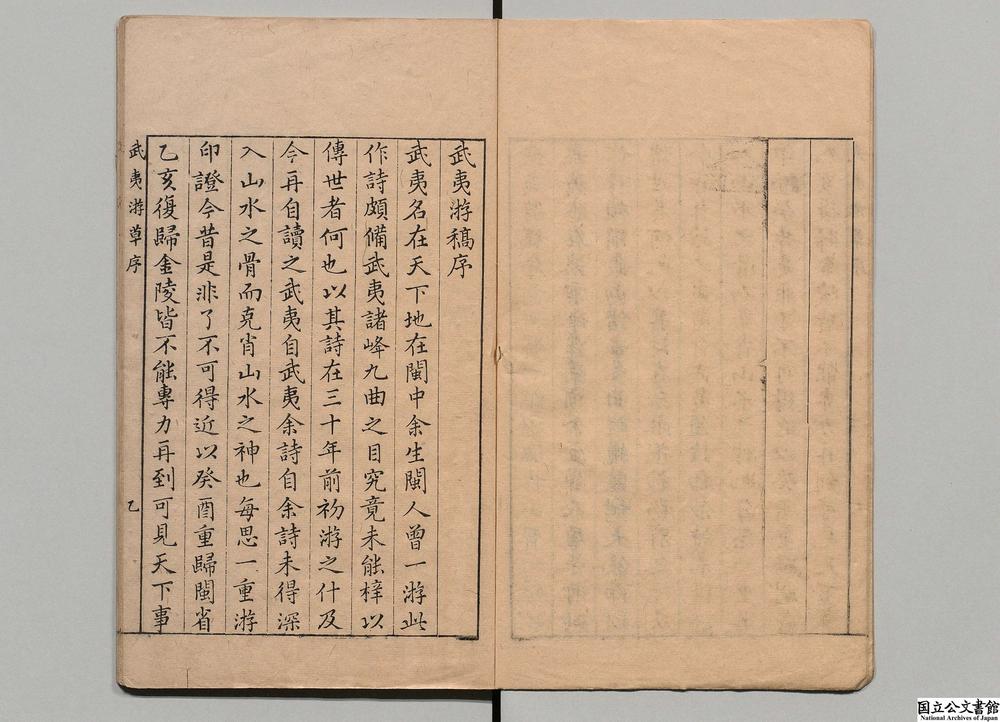 武夷游稿序
武夷名在天下地在閩中余生閩人曾一游此
作詩頗備武夷諸峰九曲之目究竟未能梓以
傳世者何也以其詩在三十年前初游之什及
今再自讀之武夷自武夷余詩自余詩未得深
入山水之骨而克肖山水之神也每思一重游
印證今昔是非了不可得近以癸酉重歸閩省
乙亥復歸金陵皆不能專力再到可見天下事
武夷游草序
乙
国立公文書館
National Archives of Japan